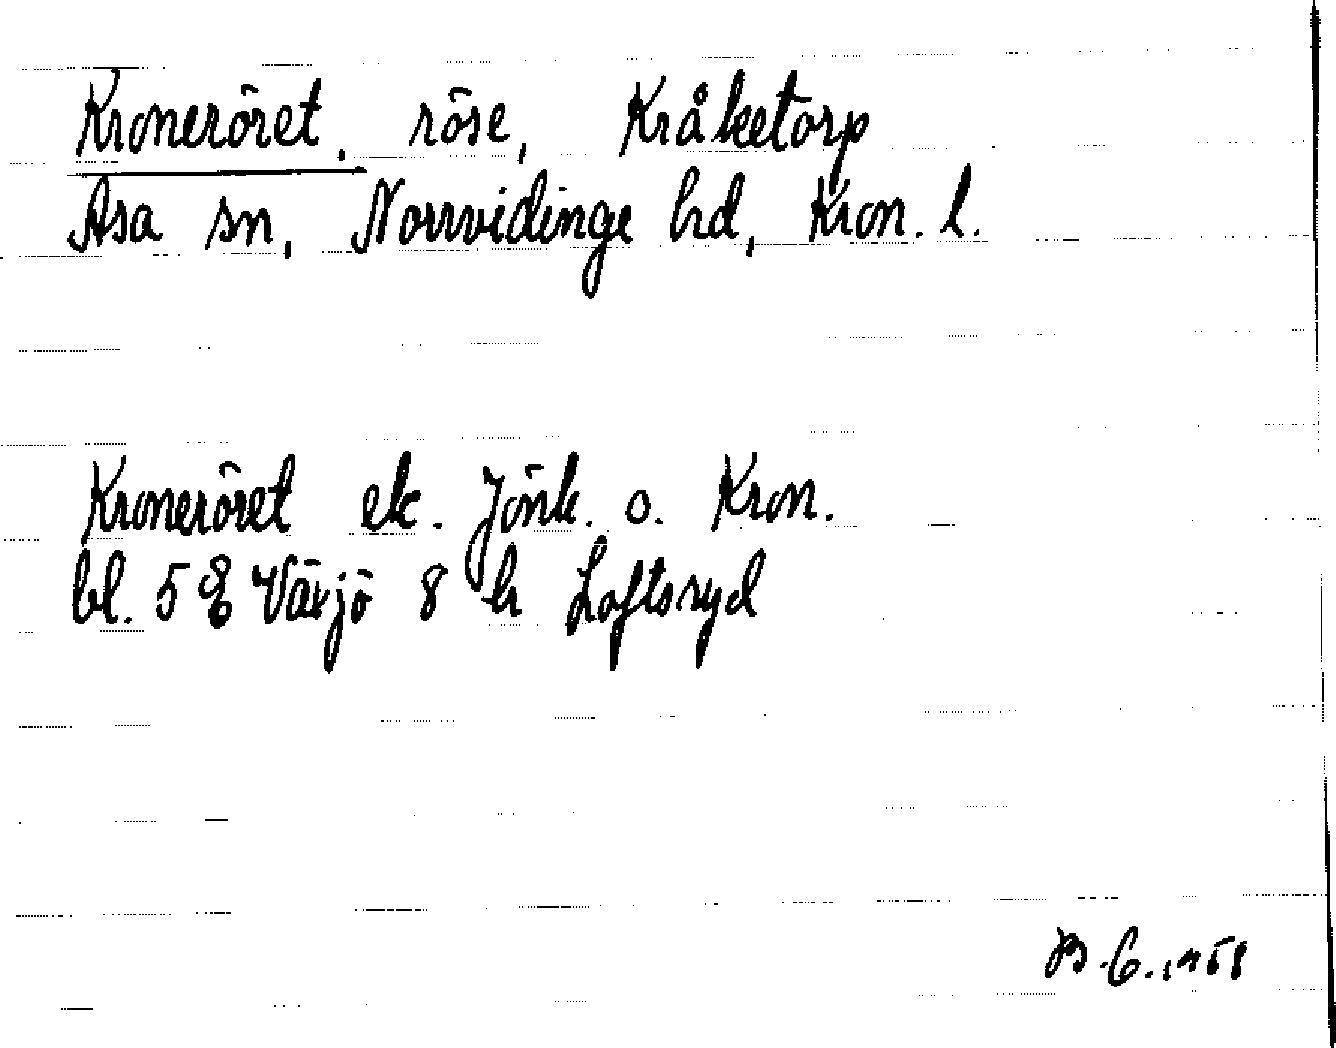 Kroneröret, röse, Kråketorp
Asa sn, Norrvidinge hd, Kron. l.
Kroneröret ek. Jönk. o. Kron.
bl. 5 Växjö 8 h Loftsryd
B.G. 1958